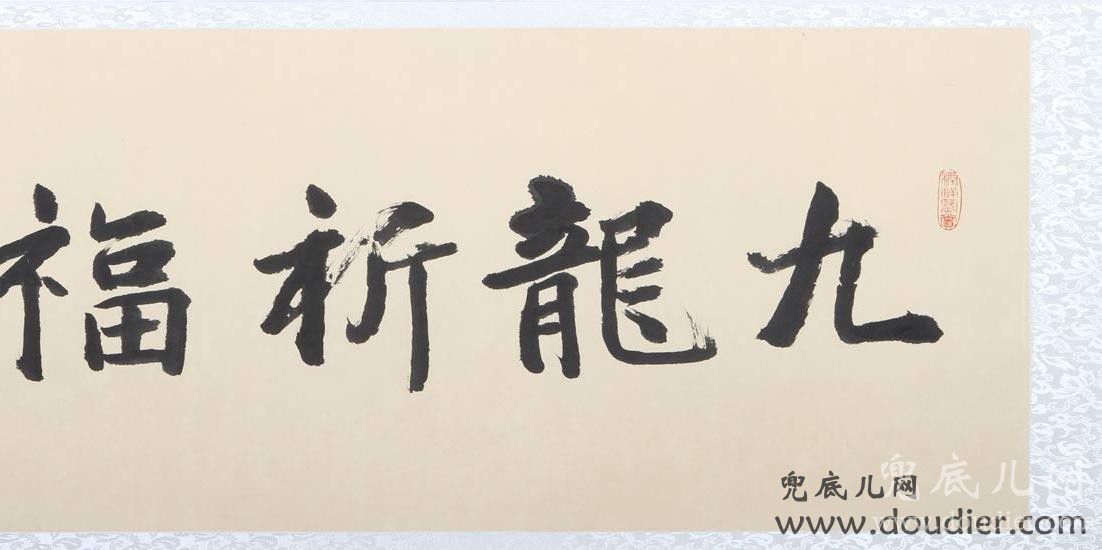 九龍祈福
兜底儿网
www.doudier.com